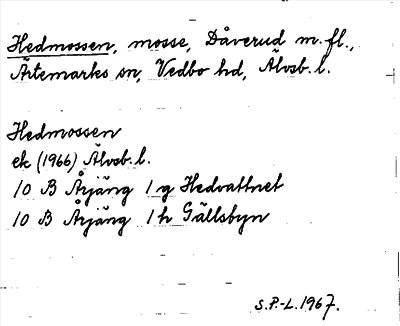 Hedmossen, mosse, Dåverud m.fl.,
Ärtemarks sn, Vedbo hd, Älvsb. l.
Hedmossen
ek (1966) Älvsb. l.
10 B Årjäng 1 g Hedvattnet
10 B Årjäng 1 h Gällsbyn
S.P.-L. 1967.